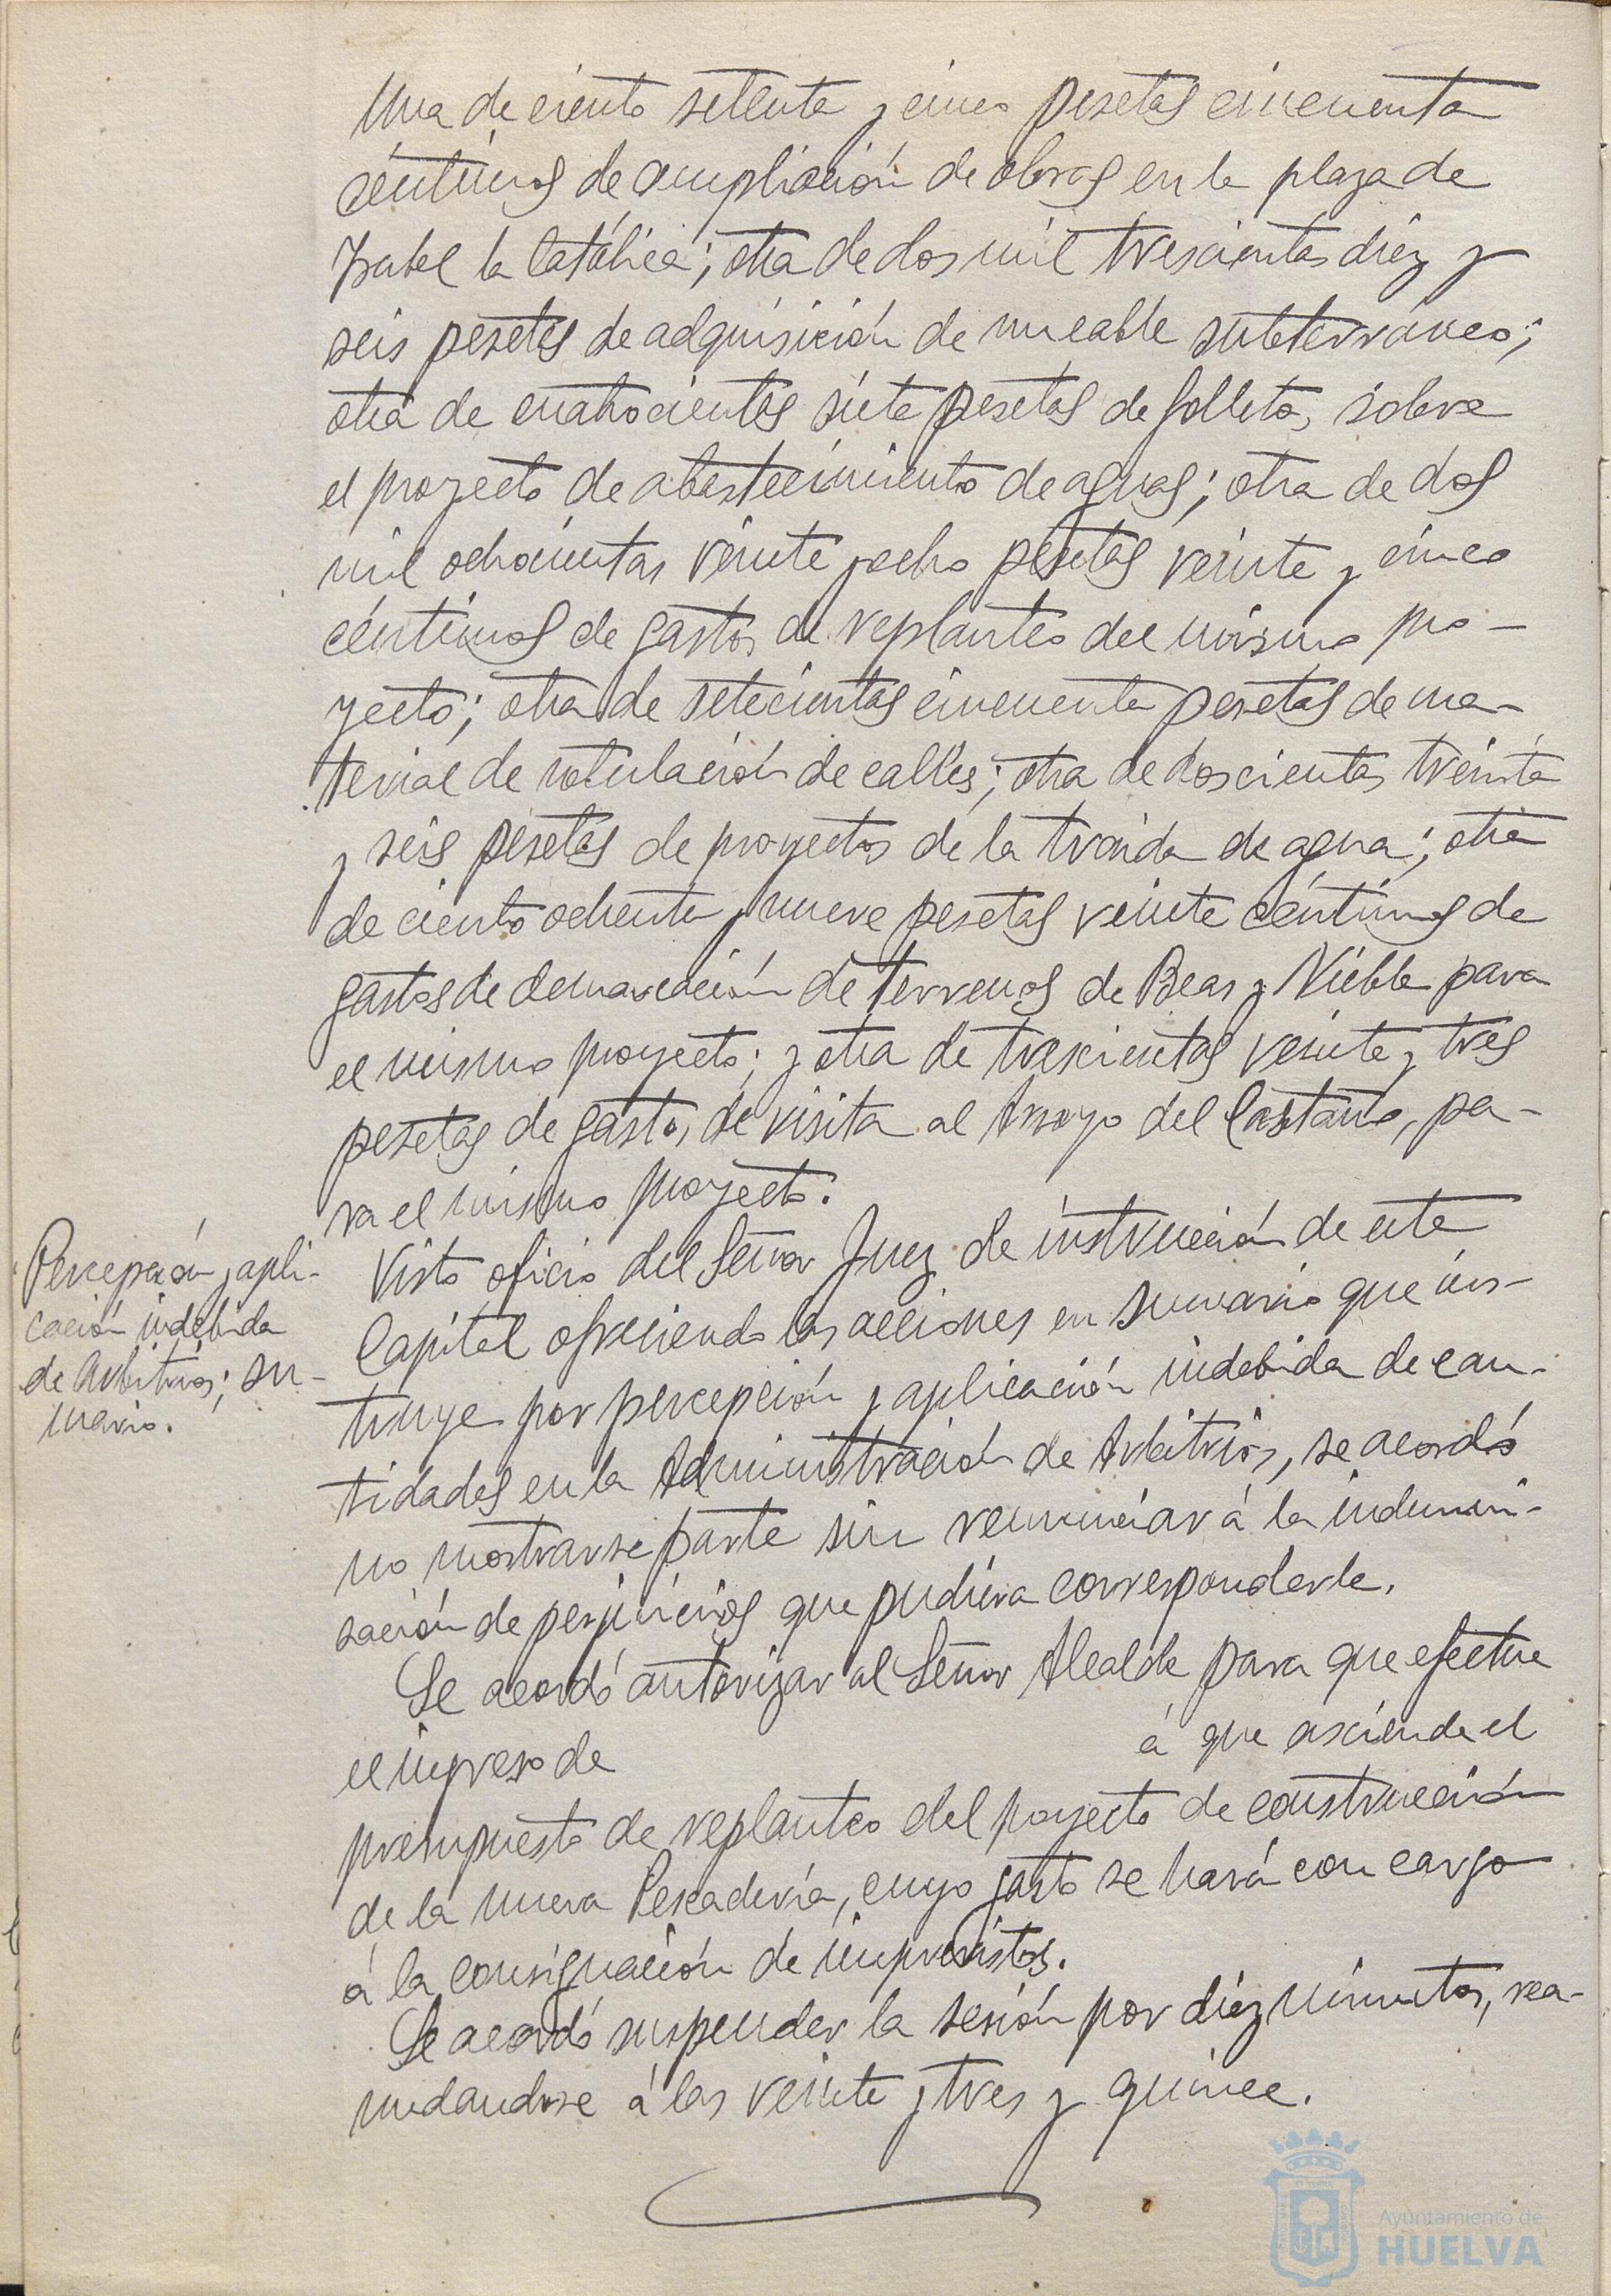 Una de ciento setenta y cinco pesetas cincuenta
céntimos de ampliación de obras en la plaza de
Isabel la Católica; otra de dos mil trescientas diez y
seis pesetas de adquisición de un cable subterráneo;
otra de cuatrocientas siete pesetas de folletos sobre
el proyecto de abastecimiento de aguas; otra de dos
mil ochocientas veinte y ocho pesetas veinte y cinco
céntimos de gastos de replanteo del mismo pro-
yecto; otra de setecientas cincuenta pesetas de ma-
terial de rotulación de calles; otra de doscientas treinta
y seis pesetas de proyectos de la traida de agua; otra
de ciento ochenta y nueve pesetas veinte céntimos de
gastos de demarcación de terrenos de Beas y Niebla para
el mismo proyecto; y otra de trescientas veinte y tres
pesetas de gastos de visita al Arroyo del Castaño, pa-
ra el mismo proyecto.
Percepción y apli-
cación indebida
de Arbitrios; su-
mario.
Visto oficio del Señor Juez de instrucción de esta
Capital ofreciendo las acciones en sumario que ins-
truye por percepción y aplicación indebida de can-
tidades en la Administración de Arbitrios, se acordó
no mostrarse parte sin renunciar á la indemni-
zación de perjuicios que pudiera corresponderle.
Se acordó autorizar al Señor Alcalde para que efectue
el ingreso de á que asciende el
presupuesto de replanteo del proyecto de construcción
de la nueva Pescadería, cuyo gasto se hará con cargo
á la consignación de imprevistos.
Se acordó suspender la sesión por diez minutos, rea-
nudandose á las veinte y tres y quince.
Ayuntamiento de
HUELVA